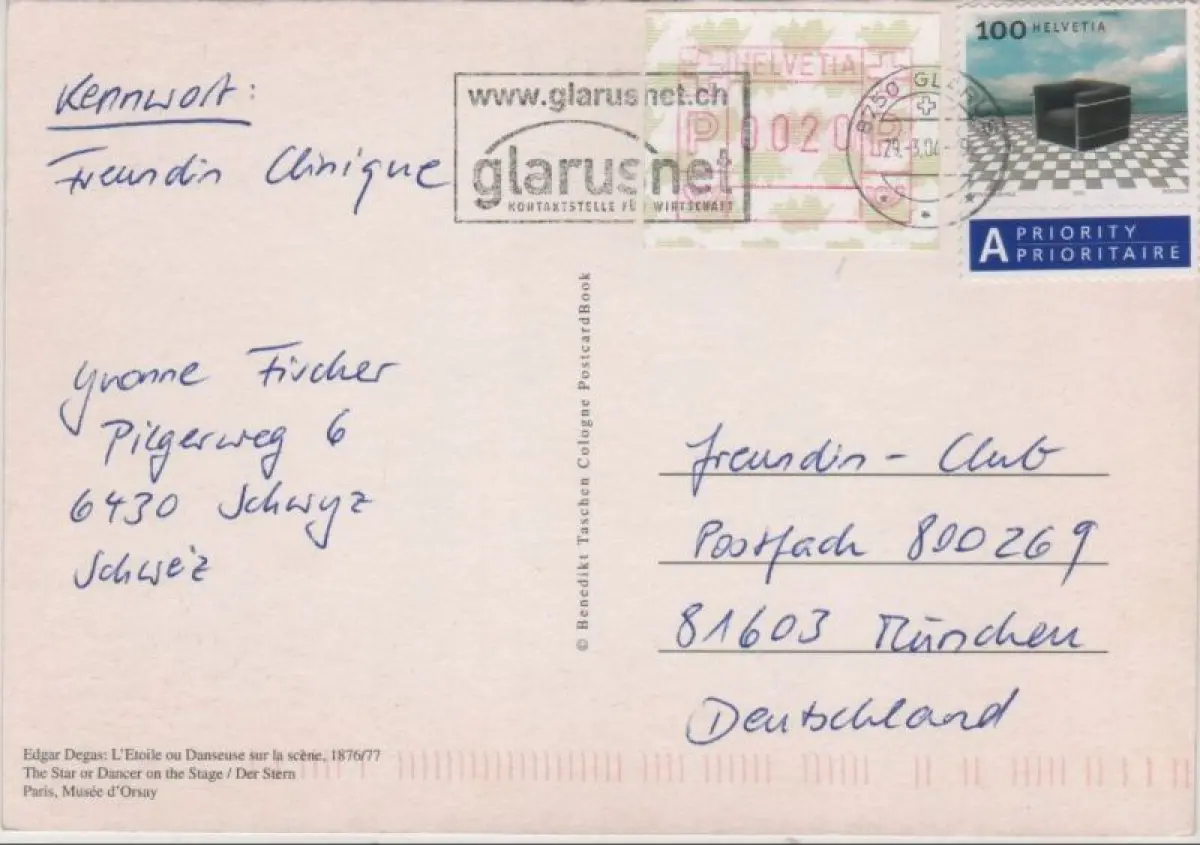 Kennwort:
Freundin Clinique
www.glarusnet.ch
glarusnet
KONTAKTSTELLE FÜR WIRTSCHAFT
HELVETIA
P 0020
8750 GLARUS
29.-3.04-
100 HELVETIA
A PRIORITY
PRIORITAIRE
Yvonne Fischer
Pilgerweg 6
6430 Schwyz
Schweiz
© Benedikt Taschen Cologne PostcardBook
freundin - Club
Postfach 800269
81603 München
Deutschland
Edgar Degas: L'Etoile ou Danseuse sur la scène, 1876/77
The Star or Dancer on the Stage / Der Stern
Paris, Musée d'Orsay